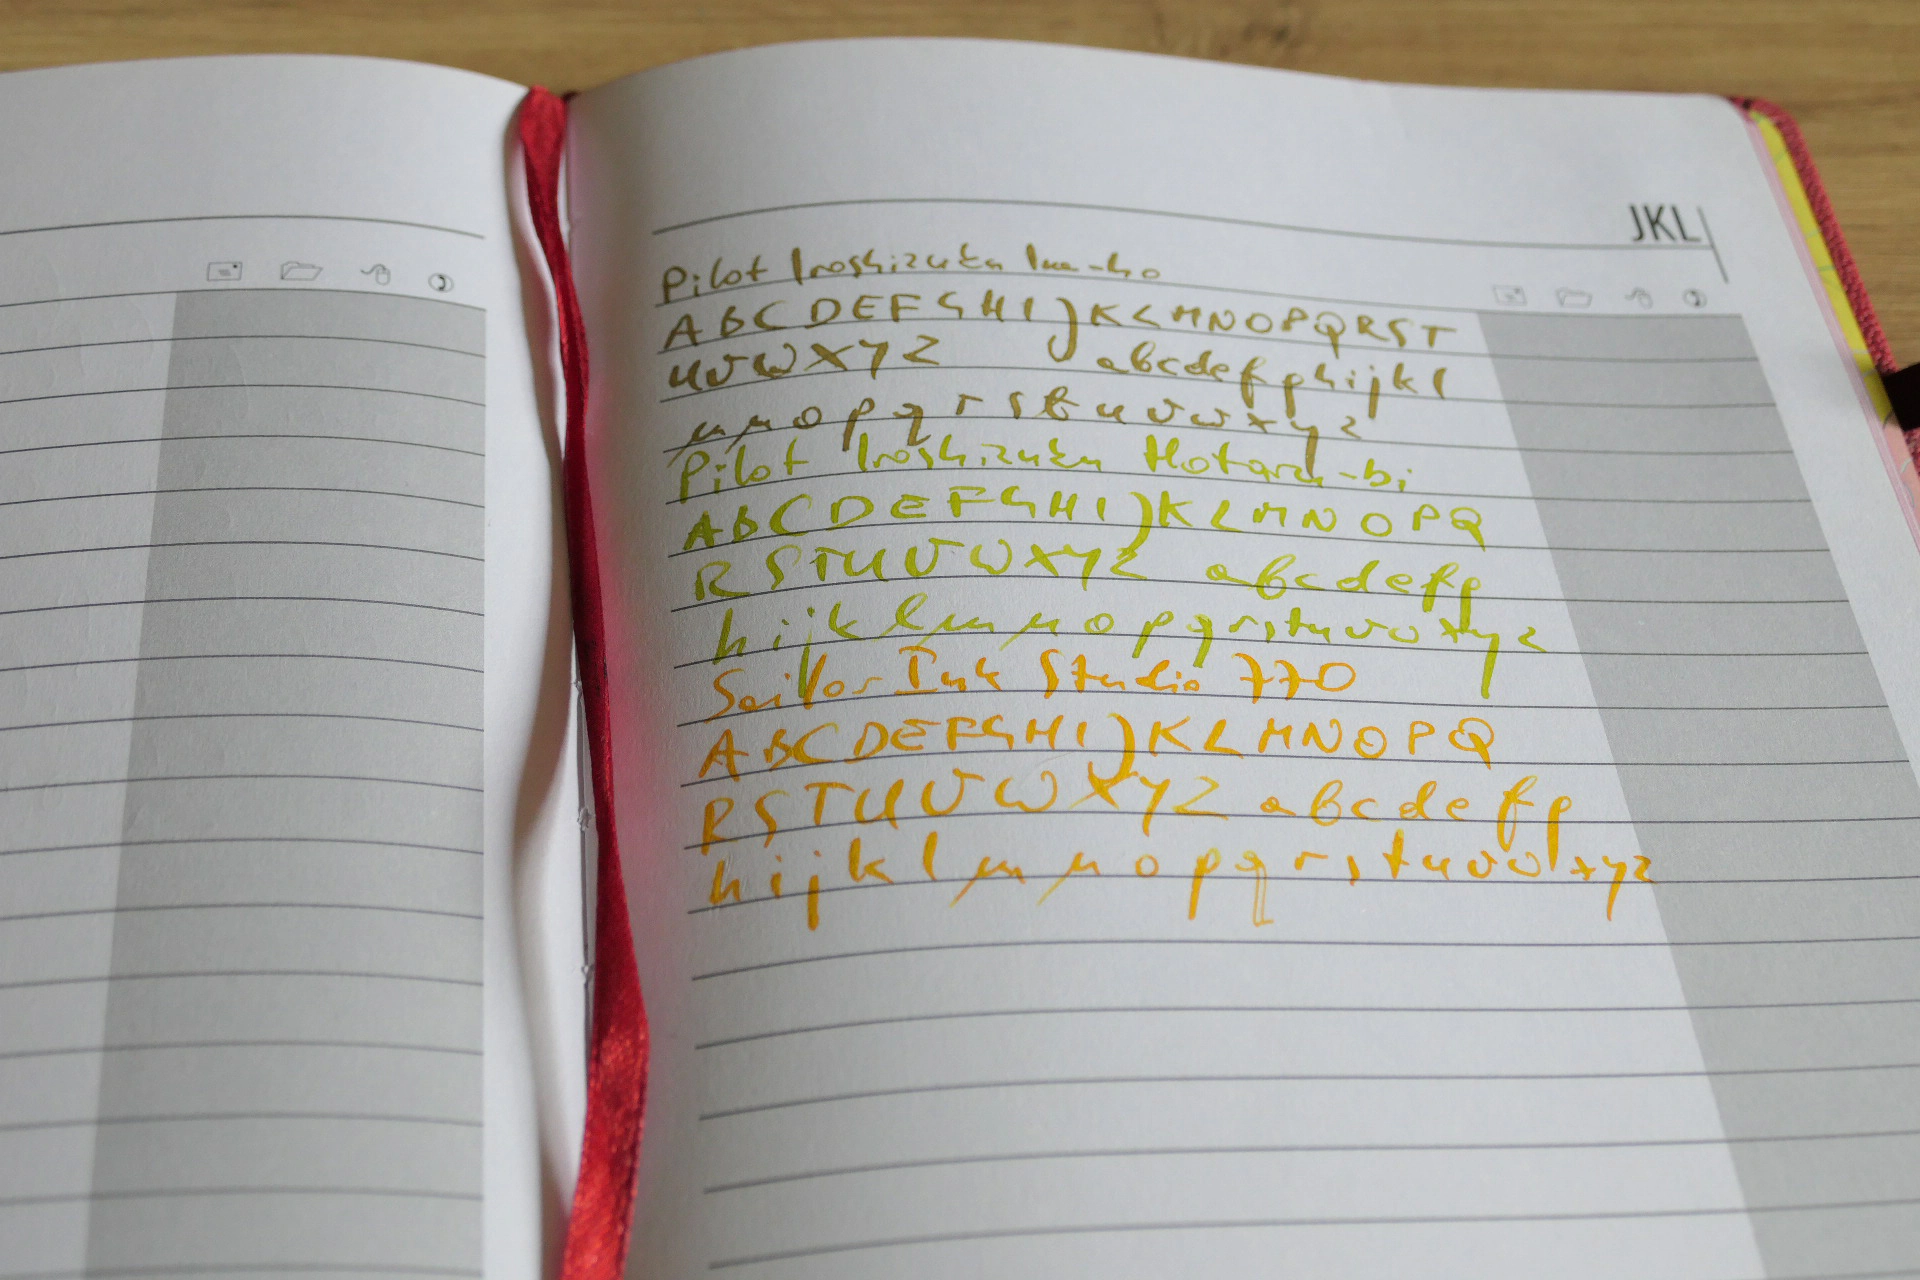 JKL
Pilot Iroshizuku Ina-ho
A B C D E F G H I J K L M N O P Q R S T
U V W X Y Z a b c d e f g h i j k l
m n o p q r s t u v w x y z
Pilot Iroshizuku Hotaru-bi
A B C D E F G H I J K L M N O P Q
R S T U V W X Y Z a b c d e f g
h i j k l m n o p q r s t u v w x y z
Sailor Ink Studio 770
A B C D E F G H I J K L M N O P Q
R S T U V W X Y Z a b c d e f g
h i j k l m n o p q r s t u v w x y z